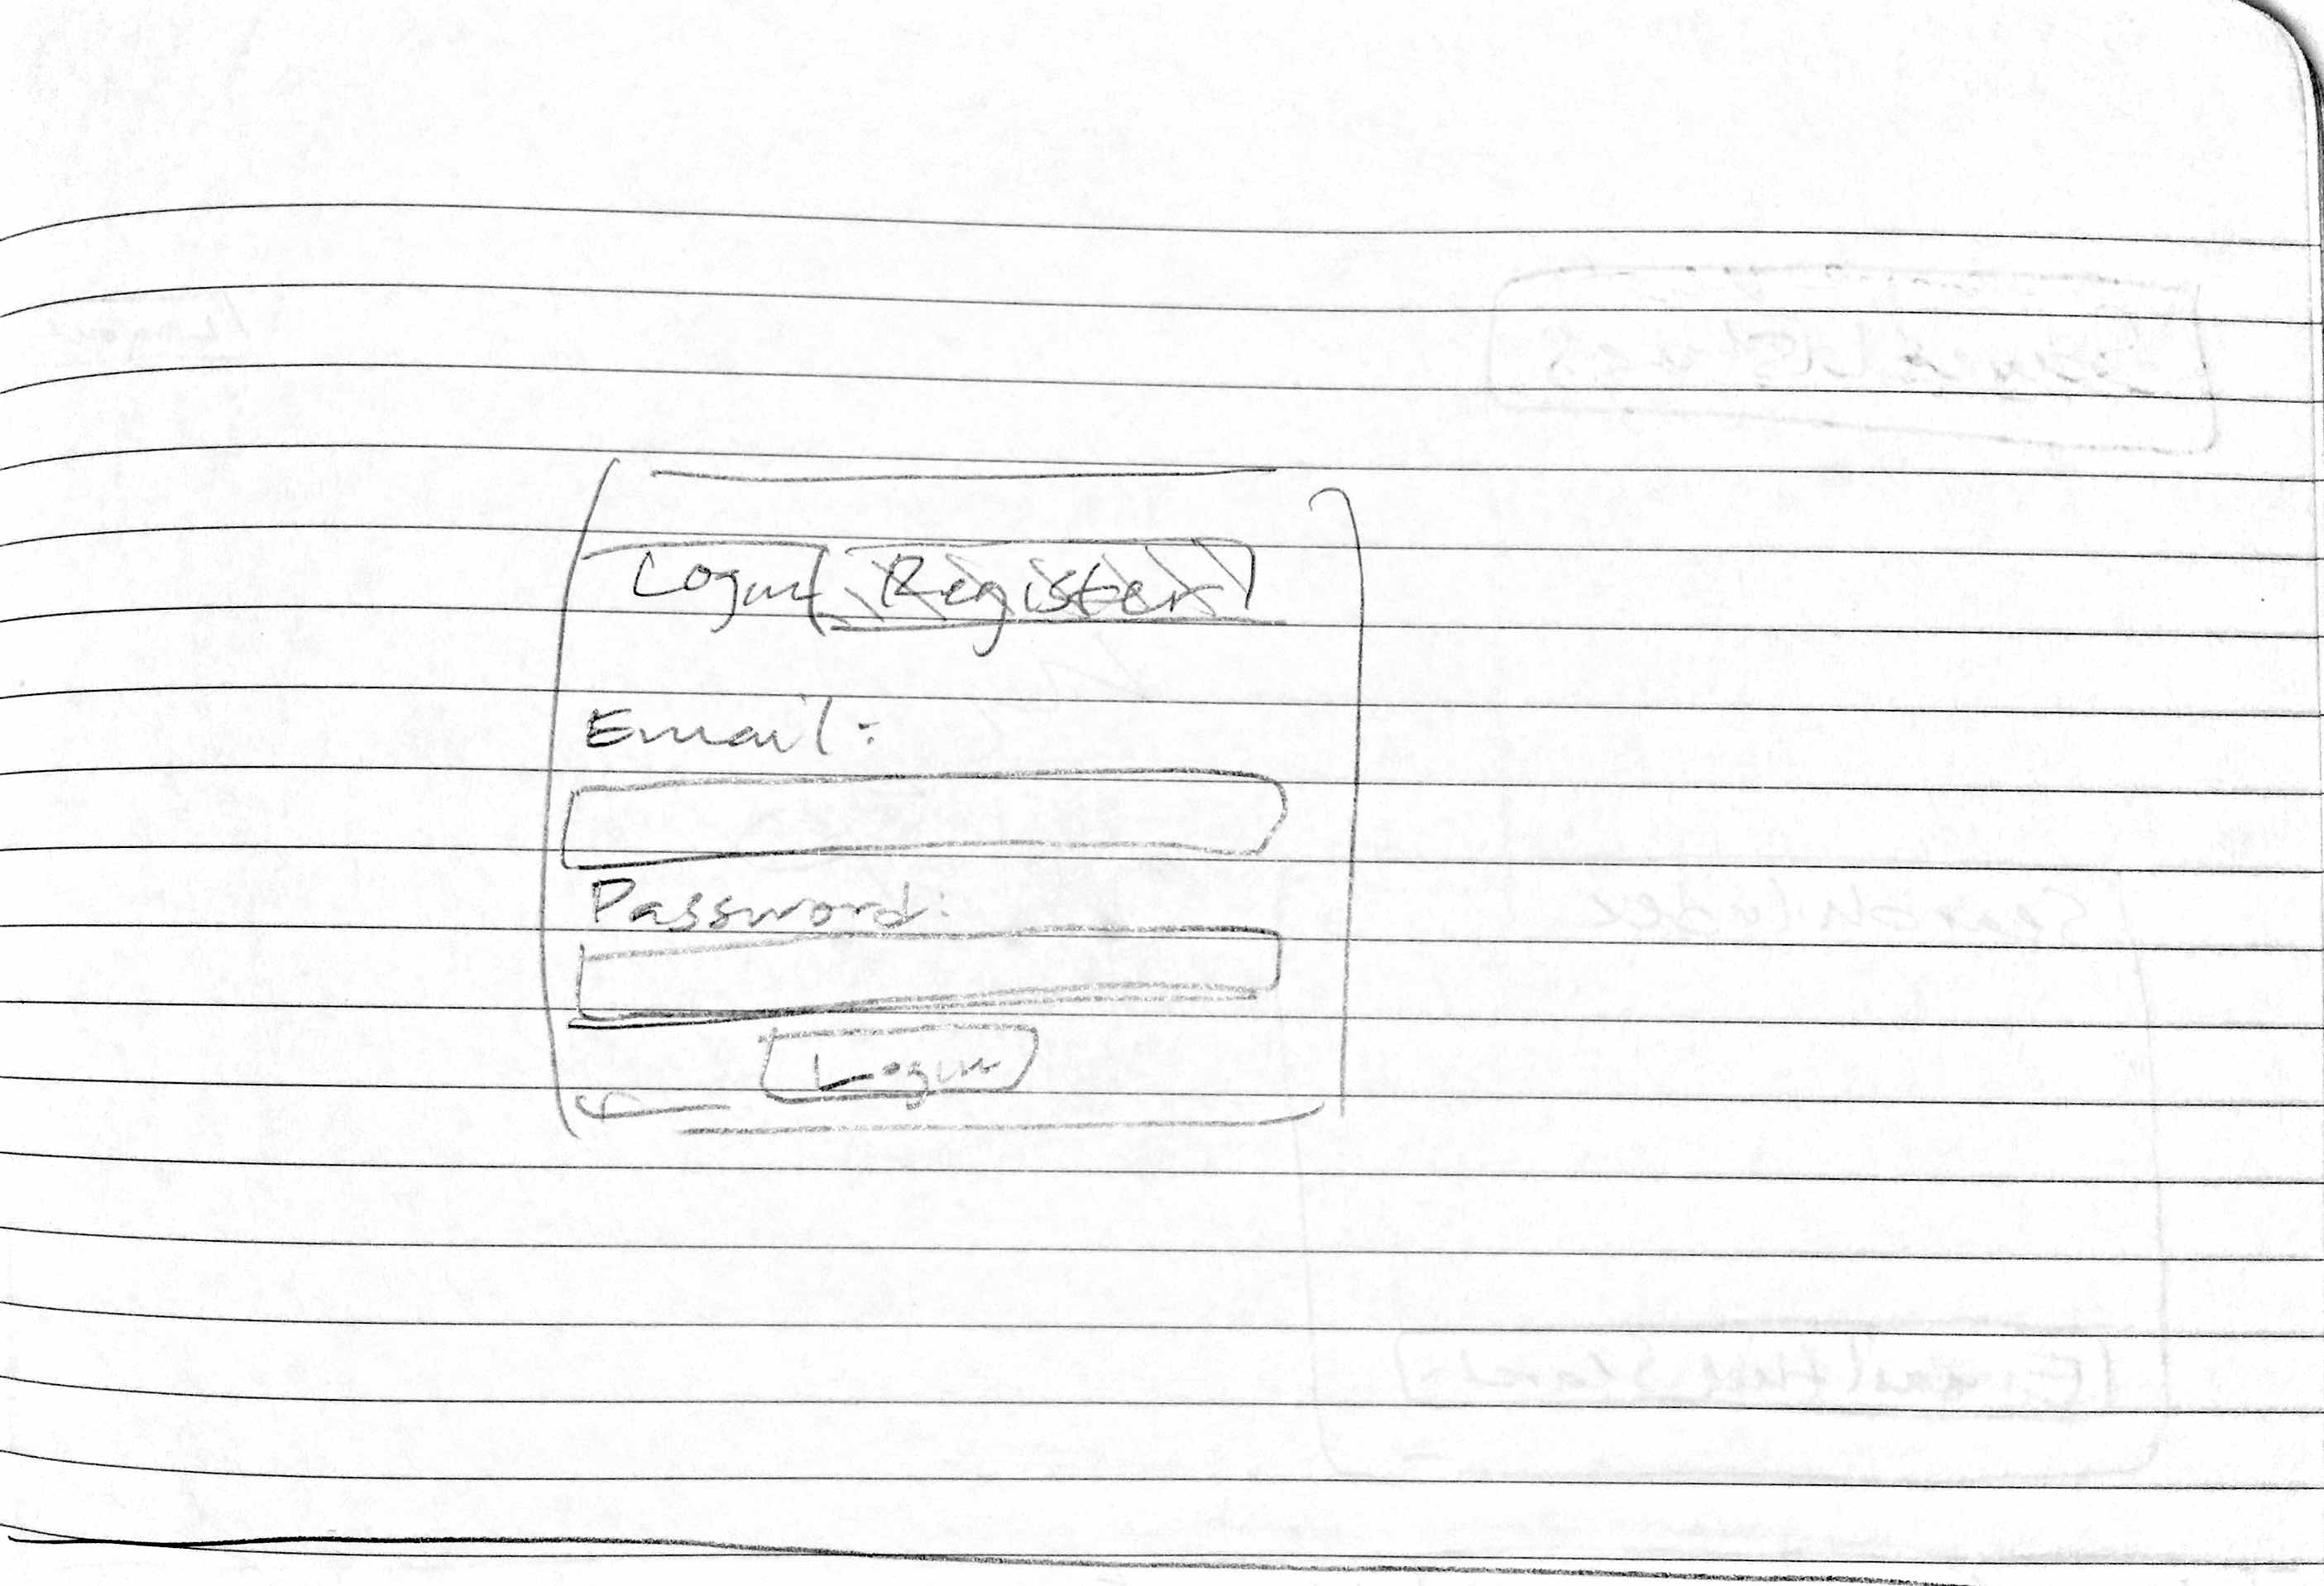 Login Register
Email:
Password:
Login